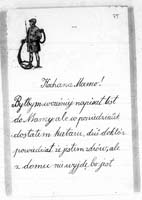 Kochana Mamo!
Byłbym wcześniej napisał list
do Mamy ale w poniedziałek
dostałem kataru, dziś doktór
powiedział że jestem zdrów, ale
z domu nie wyjdę bo jest